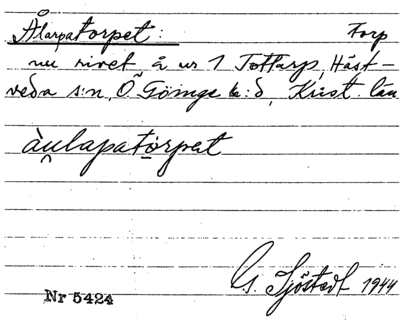 Ålarpatorpet: Torp
nu rivet å nr 1 Tottarp, Häst-
veda s:n, Ö Göinge h:d, Krist. län
àu̯lapatòrpat
G. Sjöstedt 1944
Nr 5424